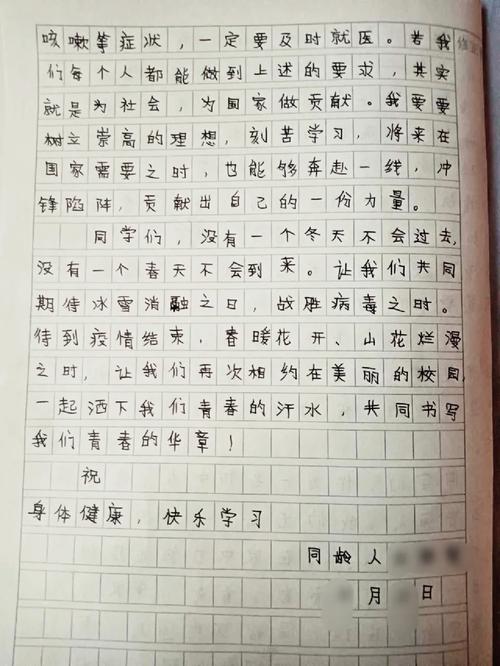 咳嗽等症状，一定要及时就医。若我
们每个人都能做到上述的要求，其实
就是为社会，为国家做贡献。我要要
树立崇高的理想，刻苦学习，将来在
国家需要之时，也能够奔赴一线，冲
锋陷阵，贡献出自己的一份力量。
同学们，没有一个冬天不会过去，
没有一个春天不会到来。让我们共同
期待冰雪消融之日，战胜病毒之时。
待到疫情结束，春暖花开、山花烂漫
之时，让我们再次相约在美丽的校园，
一起洒下我们青春的汗水，共同书写
我们青春的华章！
祝
身体健康，快乐学习
同龄人
月 日